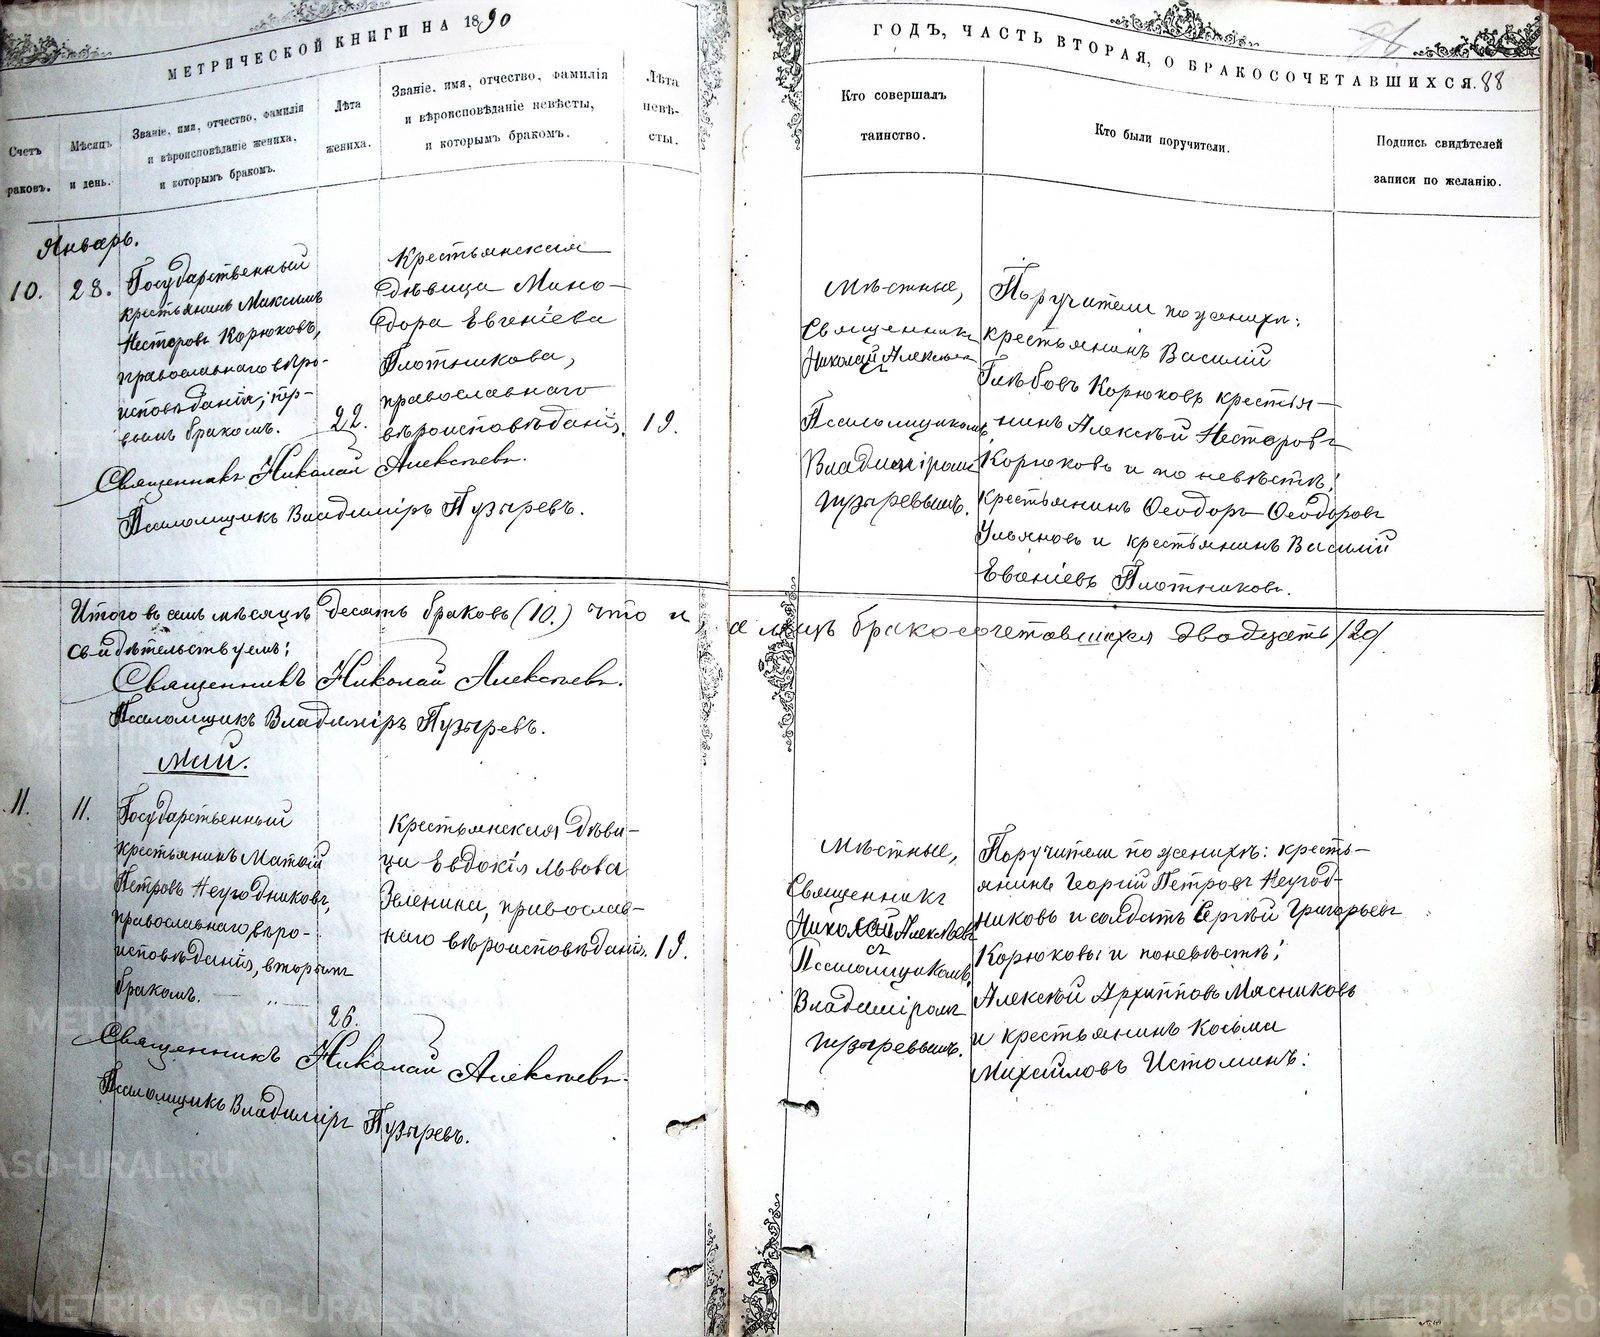 МЕТРИЧЕСКОЙ КНИГИ НА 1890
Счетъ
раковъ.
Мѣсяцъ
и день.
Званіе, имя, отчество, фамилія
и вѣроисповѣданіе жениха,
и которымъ бракомъ.
Лѣта
жениха.
Званіе, имя, отчество, фамилія
и вѣроисповѣданіе невѣсты,
и которымъ бракомъ.
Лѣта
невѣ-
сты.
Январь.
10.
28.
Государственный
крестьянинъ Максимъ
Несторовъ Корюковъ,
православнаго вѣро-
исповѣданія, пер-
вымъ бракомъ.
22.
Крестьянская
дѣвица Мино-
дора Евгеніева
Плотникова,
православнаго
вѣроисповѣданія.
19.
Священникъ Николай Алексѣевъ.
Псаломщикъ Владиміръ Пузыревъ.
Итого въ семъ мѣсяцѣ десять браковъ (10.) что и
свидѣтельствуемъ:
Священникъ Николай Алексѣевъ.
Псаломщикъ Владиміръ Пузыревъ.
Май.
11.
11.
Государственный
крестьянинъ Матѳій
Петровъ Неугодниковъ,
православнаго вѣро-
исповѣданія, вторымъ
бракомъ.
26.
Крестьянская дѣви-
ца Евдокія Львова
Зеленина, православ-
наго вѣроисповѣданія.
19.
Священникъ Николай Алексѣевъ.
Псаломщикъ Владиміръ Пузыревъ.
ГОДЪ, ЧАСТЬ ВТОРАЯ, О БРАКОСОЧЕТАВШИХСЯ. 88
Кто совершалъ
таинство.
Кто были поручители.
Подпись свидѣтелей
записи по желанію.
Мѣстные,
Священникъ
Николай Алексѣевъ
съ
Псаломщикомъ
Владиміромъ
Пузыревымъ.
Поручители по женихѣ:
крестьянинъ Василій
Глѣбовъ Корюковъ крестья-
нинъ Алексѣй Несторовъ
Корюковъ и по невѣстѣ:
крестьянинъ Ѳеодоръ Ѳеодоровъ
Ульяновъ и крестьянинъ Василій
Евгеніевъ Плотниковъ.
а лицъ бракосочетавшихся двадцать /20/
Мѣстные,
Священникъ
Николай Алексѣевъ
съ
Псаломщикомъ
Владиміромъ
Пузыревымъ.
Поручители по женихѣ: кресть-
янинъ Георгій Петровъ Неугод-
никовъ и солдатъ Сергѣй Григорьевъ
Корюковы и по невѣстѣ:
Алексѣй Архипповъ Мясниковъ
и крестьянинъ Косьма
Михайловъ Истоминъ:
METRIKI.GASO-URAL.RU